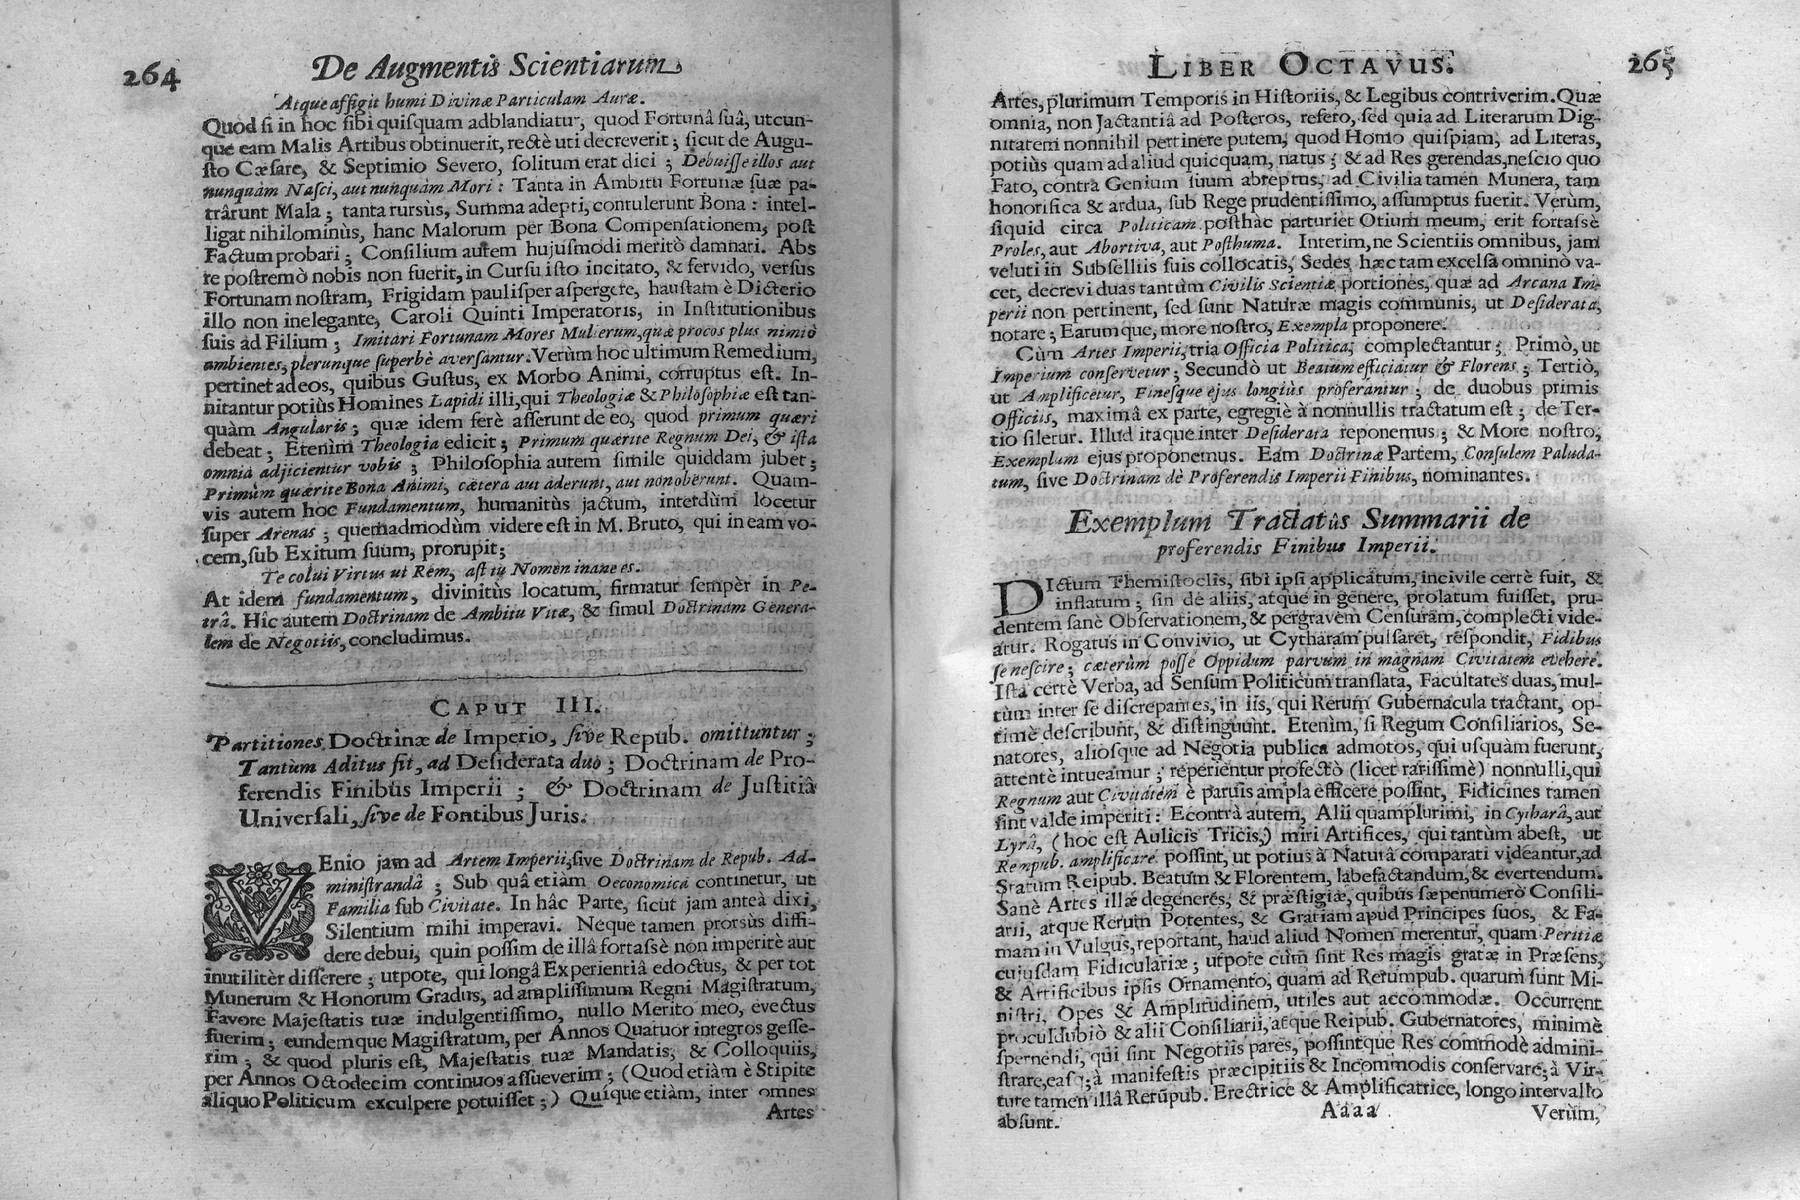 264 De Augmentis Scientiarum
Atque affigit humi Divinæ Particulam Auræ.
Quod si in hoc sibi quisquam adblandiatur, quod Fortunâ suâ, utcun-
que eam Malis Artibus obtinuerit, rectè uti decreverit; sicut de Augu-
sto Cæsare, & Septimio Severo, solitum erat dici; Debuisse illos aut
nunquàm Nasci, aut nunquàm Mori: Tanta in Ambitu Fortunæ suæ pa-
trârunt Mala; tanta rursùs, Summa adepti, contulerunt Bona: intel-
ligat nihilominùs, hanc Malorum per Bona Compensationem, post
Factum probari; Consilium autem hujusmodi meritò damnari. Abs
re postremò nobis non fuerit, in Cursu isto incitato, & fervido, versus
Fortunam nostram, Frigidam paulisper aspergere, haustam è Dicterio
illo non inelegante, Caroli Quinti Imperatoris, in Institutionibus
suis ad Filium; Imitari Fortunam Mores Mulierum, quæ procos plus nimiò
ambientes, plerunque superbè aversantur. Verùm hoc ultimum Remedium,
pertinet ad eos, quibus Gustus, ex Morbo Animi, corruptus est. In-
nitantur potiùs Homines Lapidi illi, qui Theologiæ & Philosophiæ est tan-
quàm Angularis; quæ idem ferè asserunt de eo, quod primum quæri
debeat; Etenim Theologia edicit; Primum quærite Regnum Dei, & ista
omnia adjicientur vobis; Philosophia autem simile quiddam jubet;
Primùm quærite Bona Animi, cætera aut aderunt, aut non oberunt. Quam-
vis autem hoc Fundamentum, humanitùs jactum, interdùm locetur
super Arenas; quemadmodùm videre est in M. Bruto, qui in eam vo-
cem, sub Exitum suum, prorupit;
Te colui Virtus ut Rem, ast tu Nomen inane es.
At idem fundamentum, divinitùs locatum, firmatur sempèr in Pe-
trâ. Hîc autem Doctrinam de Ambitu Vitæ, & simul Doctrinam Genera-
lem de Negotiis, concludimus.
CAPUT III.
Partitiones Doctrinæ de Imperio, sive Repub. omittuntur;
Tantùm Aditus fit, ad Desiderata duo; Doctrinam de Pro-
ferendis Finibus Imperii; & Doctrinam de Justitiâ
Universali, sive de Fontibus Juris.
VEnio jam ad Artem Imperii, sive Doctrinam de Repub. Ad-
ministrandâ; Sub quâ etiàm Oeconomica continetur, ut
Familia sub Civitate. In hâc Parte, sicut jam anteà dixi,
Silentium mihi imperavi. Neque tamen prorsùs diffi-
dere debui, quin possim de illâ fortassè non imperitè aut
inutilitèr disserere; utpote, qui longâ Experientiâ edoctus, & per tot
Munerum & Honorum Gradus, ad amplissimum Regni Magistratum,
Favore Majestatis tuæ indulgentissimo, nullo Merito meo, evectus
fuerim; eundemque Magistratum, per Annos Quatuor integros gesse-
rim; & quod pluris est, Majestatis tuæ Mandatis, & Colloquiis,
per Annos Octodecim continuos assueverim; (Quod etiàm è Stipite
aliquo Politicum exculpere potuisset;) Quique etiàm, inter omnes
Artes
LIBER OCTAVUS. 265
Artes, plurimum Temporis in Historiis, & Legibus contriverim. Quæ
omnia, non Jactantiâ ad Posteros, refero, sed quia ad Literarum Dig-
nitatem nonnihil pertinere putem, quod Homo quispiam, ad Literas,
potiùs quam ad aliud quicquam, natus; & ad Res gerendas, nescio quo
Fato, contra Genium suum abreptus, ad Civilia tamen Munera, tam
honorifica & ardua, sub Rege prudentissimo, assumptus fuerit. Verùm,
siquid circa Politicam posthàc parturiet Otium meum, erit fortassè
Proles, aut Abortiva, aut Posthuma. Interim, ne Scientiis omnibus, jam
veluti in Subselliis suis collocatis, Sedes hæc tam excelsa omninò va-
cet, decrevi duas tantùm Civilis Scientiæ portiones, quæ ad Arcana Im-
perii non pertinent, sed sunt Naturæ magis communis, ut Desiderata,
notare; Earumque, more nostro, Exempla proponere.
Cùm Artes Imperii, tria Officia Politica, complectantur; Primò, ut
Imperium conservetur; Secundò ut Beatum efficiatur & Florens; Tertiò,
ut Amplificetur, Finesque ejus longiùs proferantur; de duobus primis
Officiis, maximâ ex parte, egregiè à nonnullis tractatum est; de Ter-
tio siletur. Illud itaque inter Desiderata reponemus; & More nostro,
Exemplum ejus proponemus. Eam Doctrinæ Partem, Consulem Paluda-
tum, sive Doctrinam de Proferendis Imperii Finibus, nominantes.
Exemplum Tractatûs Summarii de
proferendis Finibus Imperii.
DIctum Themistoclis, sibi ipsi applicatum, incivile certè fuit, &
inflatum; sin de aliis, atque in genere, prolatum fuisset, pru-
dentem sanè Observationem, & pergravem Censuram, complecti vide-
atur. Rogatus in Convivio, ut Cytharam pulsaret, respondit, Fidibus
se nescire; cæterùm posse Oppidum parvum in magnam Civitatem evehere.
Ista certè Verba, ad Sensum Politicum translata, Facultates duas, mul-
tùm inter se discrepantes, in iis, qui Rerum Gubernacula tractant, op-
timè describunt, & distinguunt. Etenim, si Regum Consiliarios, Se-
natores, aliosque ad Negotia publica admotos, qui usquàm fuerunt,
attentè intueamur; reperientur profectò (licet rarissimè) nonnulli, qui
Regnum aut Civitatem è parvis ampla efficere possint, Fidicines tamen
sint valde imperiti: Econtrà autem, Alii quamplurimi, in Cytharâ, aut
Lyrâ, (hoc est Aulicis Tricis,) miri Artifices, qui tantùm abest, ut
Rempub. amplificare possint, ut potius à Naturâ comparati videantur, ad
Statum Reipub. Beatum & Florentem, labefactandum, & evertendum.
Sanè Artes illæ degeneres, & præstigiæ, quibus sæpenumerò Consili-
arii, atque Rerum Potentes, & Gratiam apud Principes suos, & Fa-
mam in Vulgus, reportant, haud aliud Nomen merentur, quam Peritiæ
cujusdam Fidiculariæ; utpote cùm sint Res magis gratæ in Præsens,
& Artificibus ipsis Ornamento, quam ad Rerumpub. quarum sunt Mi-
nistri, Opes & Amplitudinem, utiles aut accommodæ. Occurrent
proculdubiò & alii Consiliarii, atque Reipub. Gubernatores, minimè
spernendi, qui sint Negotiis pares, possintque Res commodè admini-
strare, easq; à manifestis præcipitiis & Incommodis conservare; à Vir-
tute tamen illâ Rerũpub. Erectrice & Amplificatrice, longo intervallo
absunt.
Aaaa Verùm,